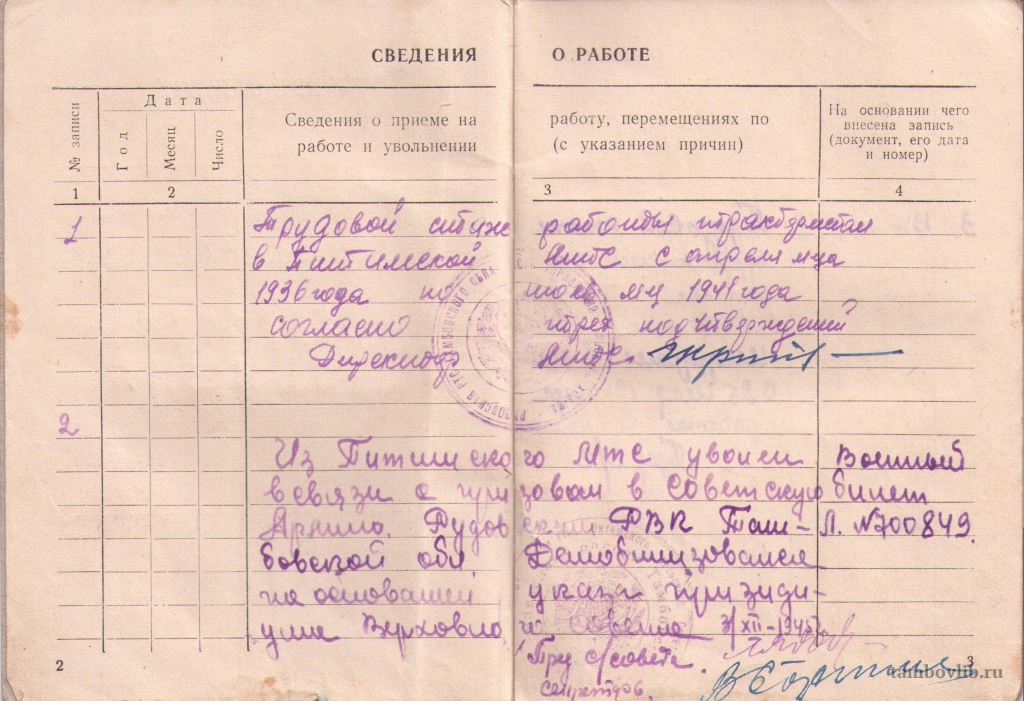 СВЕДЕНИЯ О РАБОТЕ
№ записи
Дата
Год
Месяц
Число
Сведения о приеме на работу, перемещениях по
работе и увольнении (с указанием причин)
На основании чего
внесена запись
(документ, его дата
и номер)
1 2 3 4
1 Трудовой стаж работы трактористом
в МТС с апреля м-ца
1936 года по м-ц 1941 года
согласно трех подтверждений
Директор МТС.
2
Из МТС уволен Военный
в связи с призовом в Советскую билет
Армию. РВК Там- Л. №700849.
бовской обл. Демобилизовался
на основании указа призиди-
ума Верховно го совета 3/XII-1945
Пред с/совета.
секретарь.
2
3
tambovlib.ru